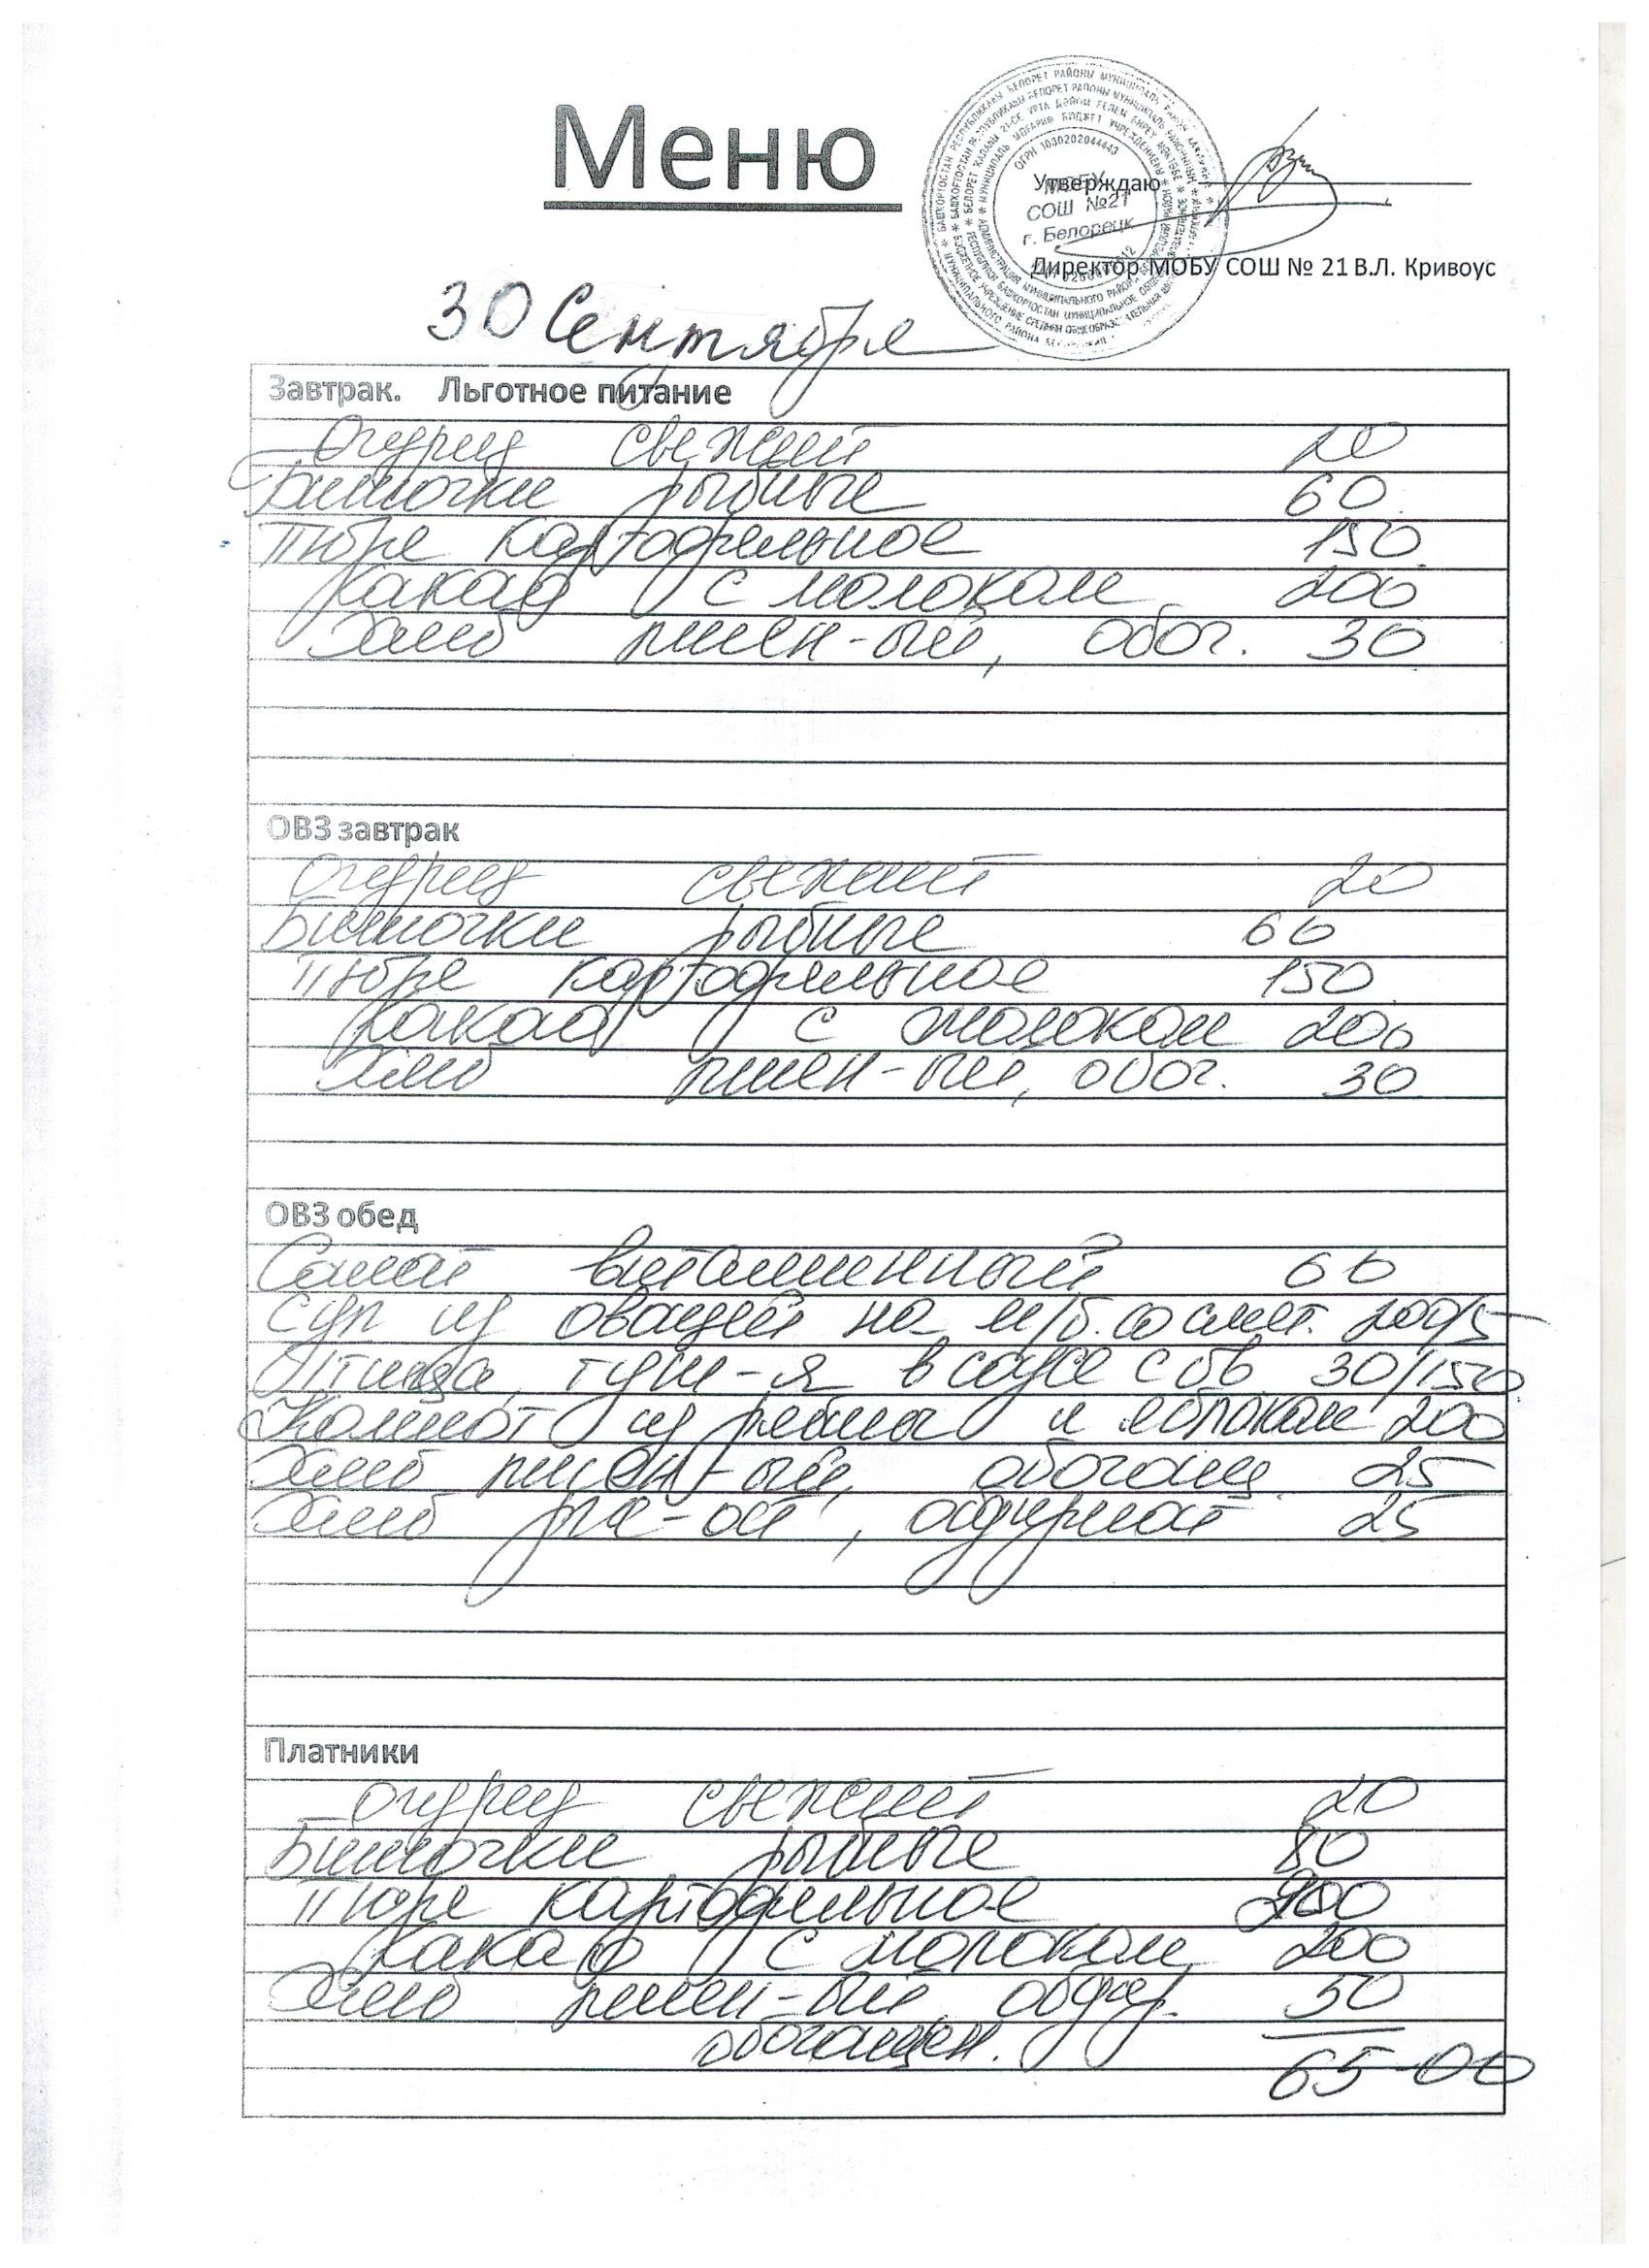 Меню
Утверждаю
МОБУ
СОШ №21
г. Белорецк
ОГРН 1030202044443
Директор МОБУ СОШ № 21 В.Л. Кривоус
30 Сентября
Завтрак. Льготное питание
Огурец свежий 20
Биточки рыбные 60
Пюре картофельное 150
Какао с молоком 200
Хлеб пшен-ый, обог. 30
ОВЗ завтрак
Огурец свежий 20
Биточки рыбные 60
Пюре картофельное 150
Какао с молоком 200
Хлеб пшен-ый, обог. 30
ОВЗ обед
Салат витаминный 60
Суп из овощей на м/б. со смет. 200/5
Птица, туш-я в соусе с ов 30/150
Компот из рябины и яблоком 200
Хлеб пшен-ый, обогащ. 25
Хлеб рж-ой, 25
Платники
Огурец свежий 20
Биточки рыбные 80
Пюре картофельное
Какао с молоком 200
Хлеб пшен-ый 50
обогащен.
65-00